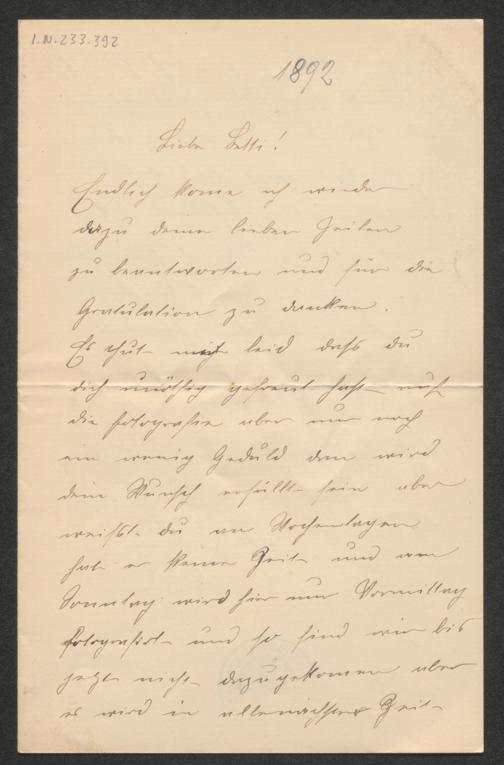 I.N. 233.392
1892
Liebe Betti!
Endlich kome ich wieder
dazu deine lieben Zeilen
zu beantworten und für die
Gratulation zu danken.
Es thut mir leid daß du
dich unöthig gefreut hast auf
die fotografie aber nur noch
ein wenig Geduld dan wird
dein Wunsch erfüllt sein aber
weißt du an Wochentagen
hat er keine Zeit und am
Sonntag wird hier nur Vormittag
fotografirt und so sind wir bis
jetzt nicht dazugekomen aber
es wird in allernächster Zeit